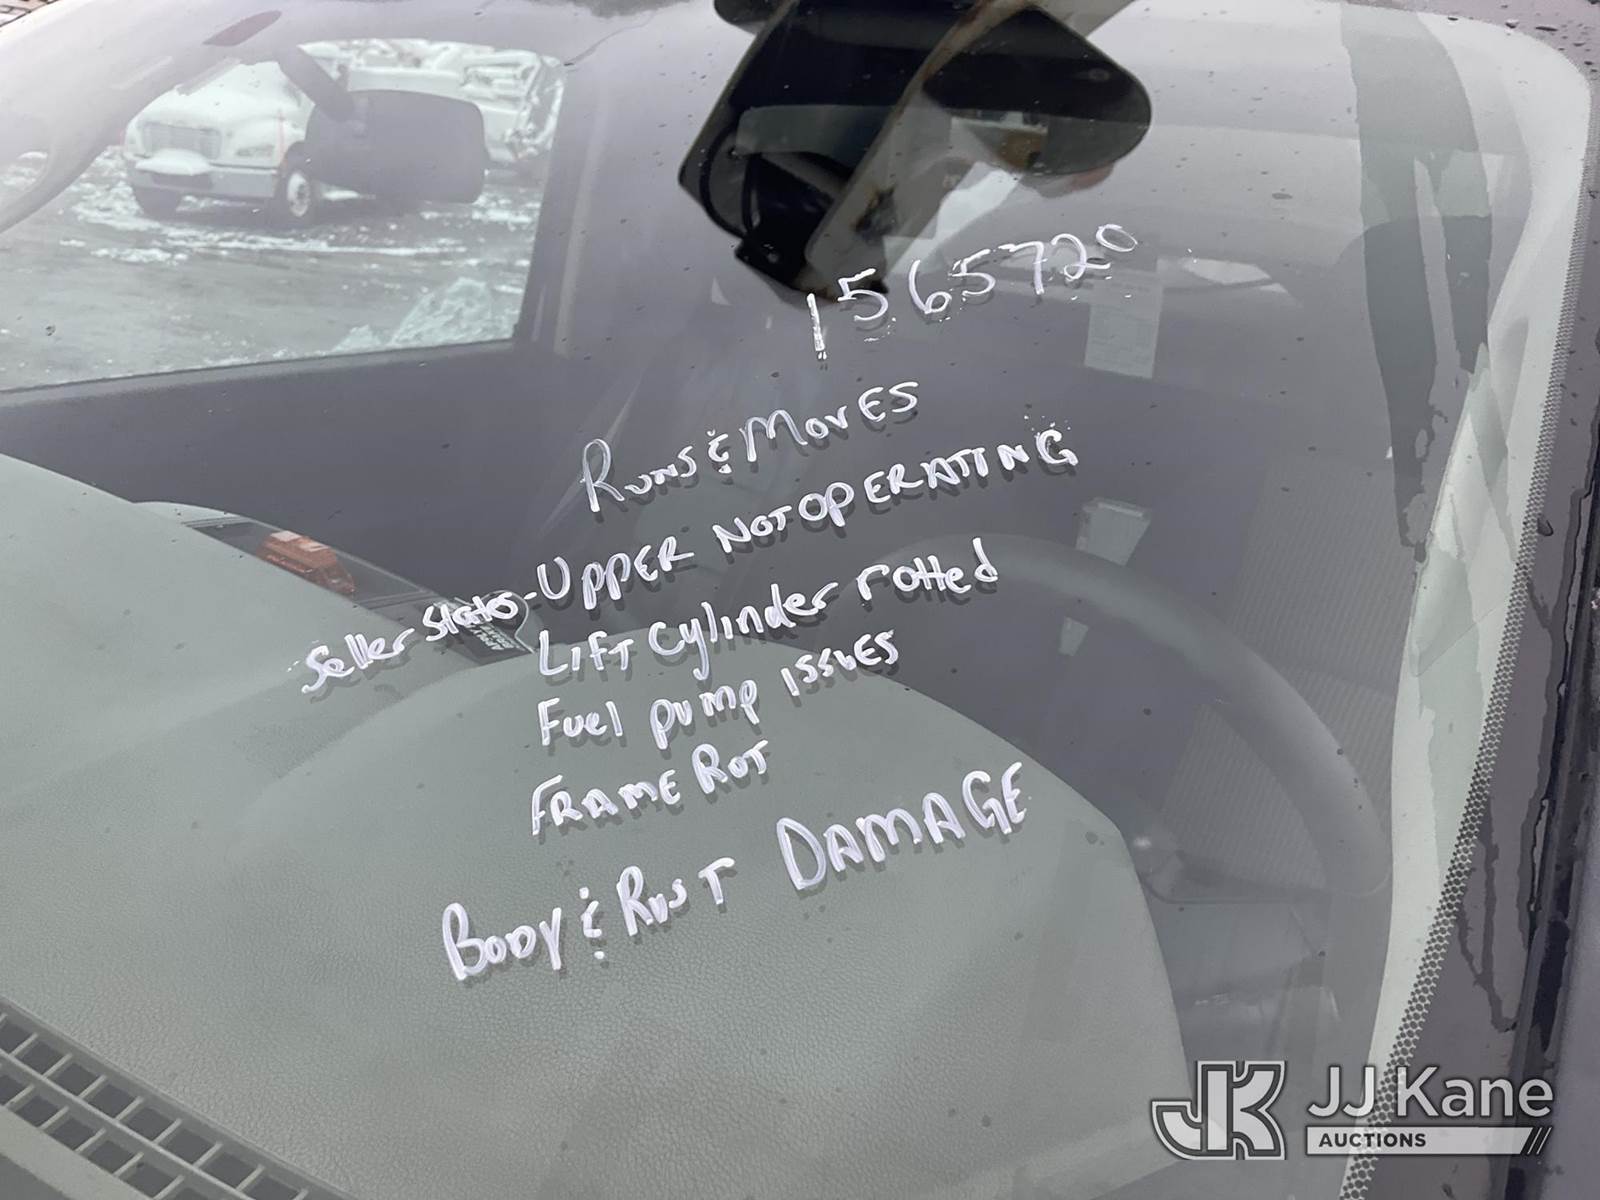 1565720
Runs & Moves
Seller States - Upper Not Operating
Lift Cylinder rotted
Fuel pump issues
Frame Rot
Body & Rust Damage
JJ Kane
AUCTIONS